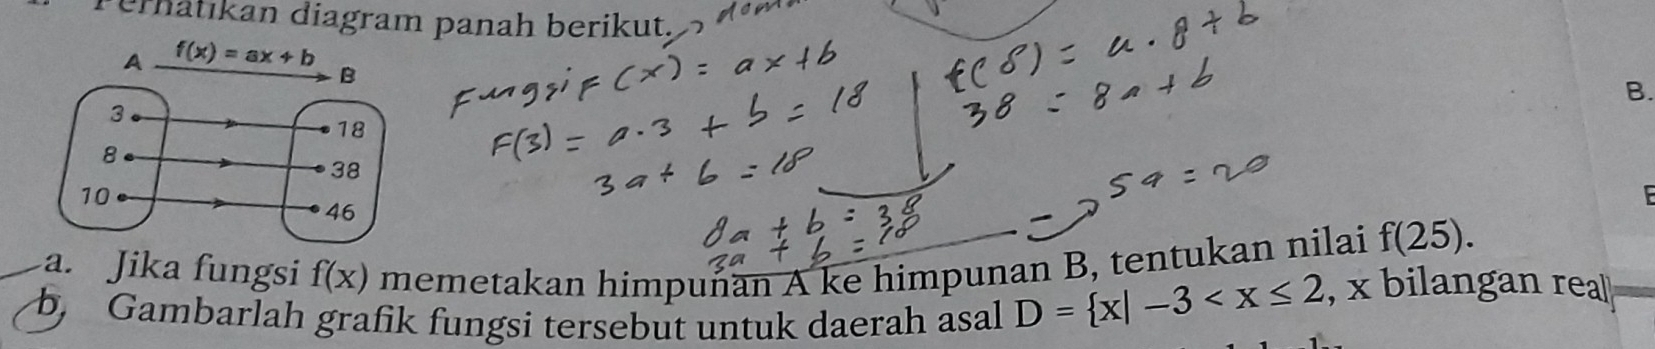 Perhatikan diagram panah berikut.
A f(x) = ax + b B
3 18
8 38
10 46
Fungsi F(x) = ax+b
F(3) = a.3 + b = 18
3a + b = 18
f(8) = a.8+b
38 = 8a+b
8a + b = 38
3a + b = 18
5a = 20
a. Jika fungsi f(x) memetakan himpunan A ke himpunan B, tentukan nilai f(25).
b, Gambarlah grafik fungsi tersebut untuk daerah asal D = {x| −3 < x ≤ 2, x bilangan real}
B.